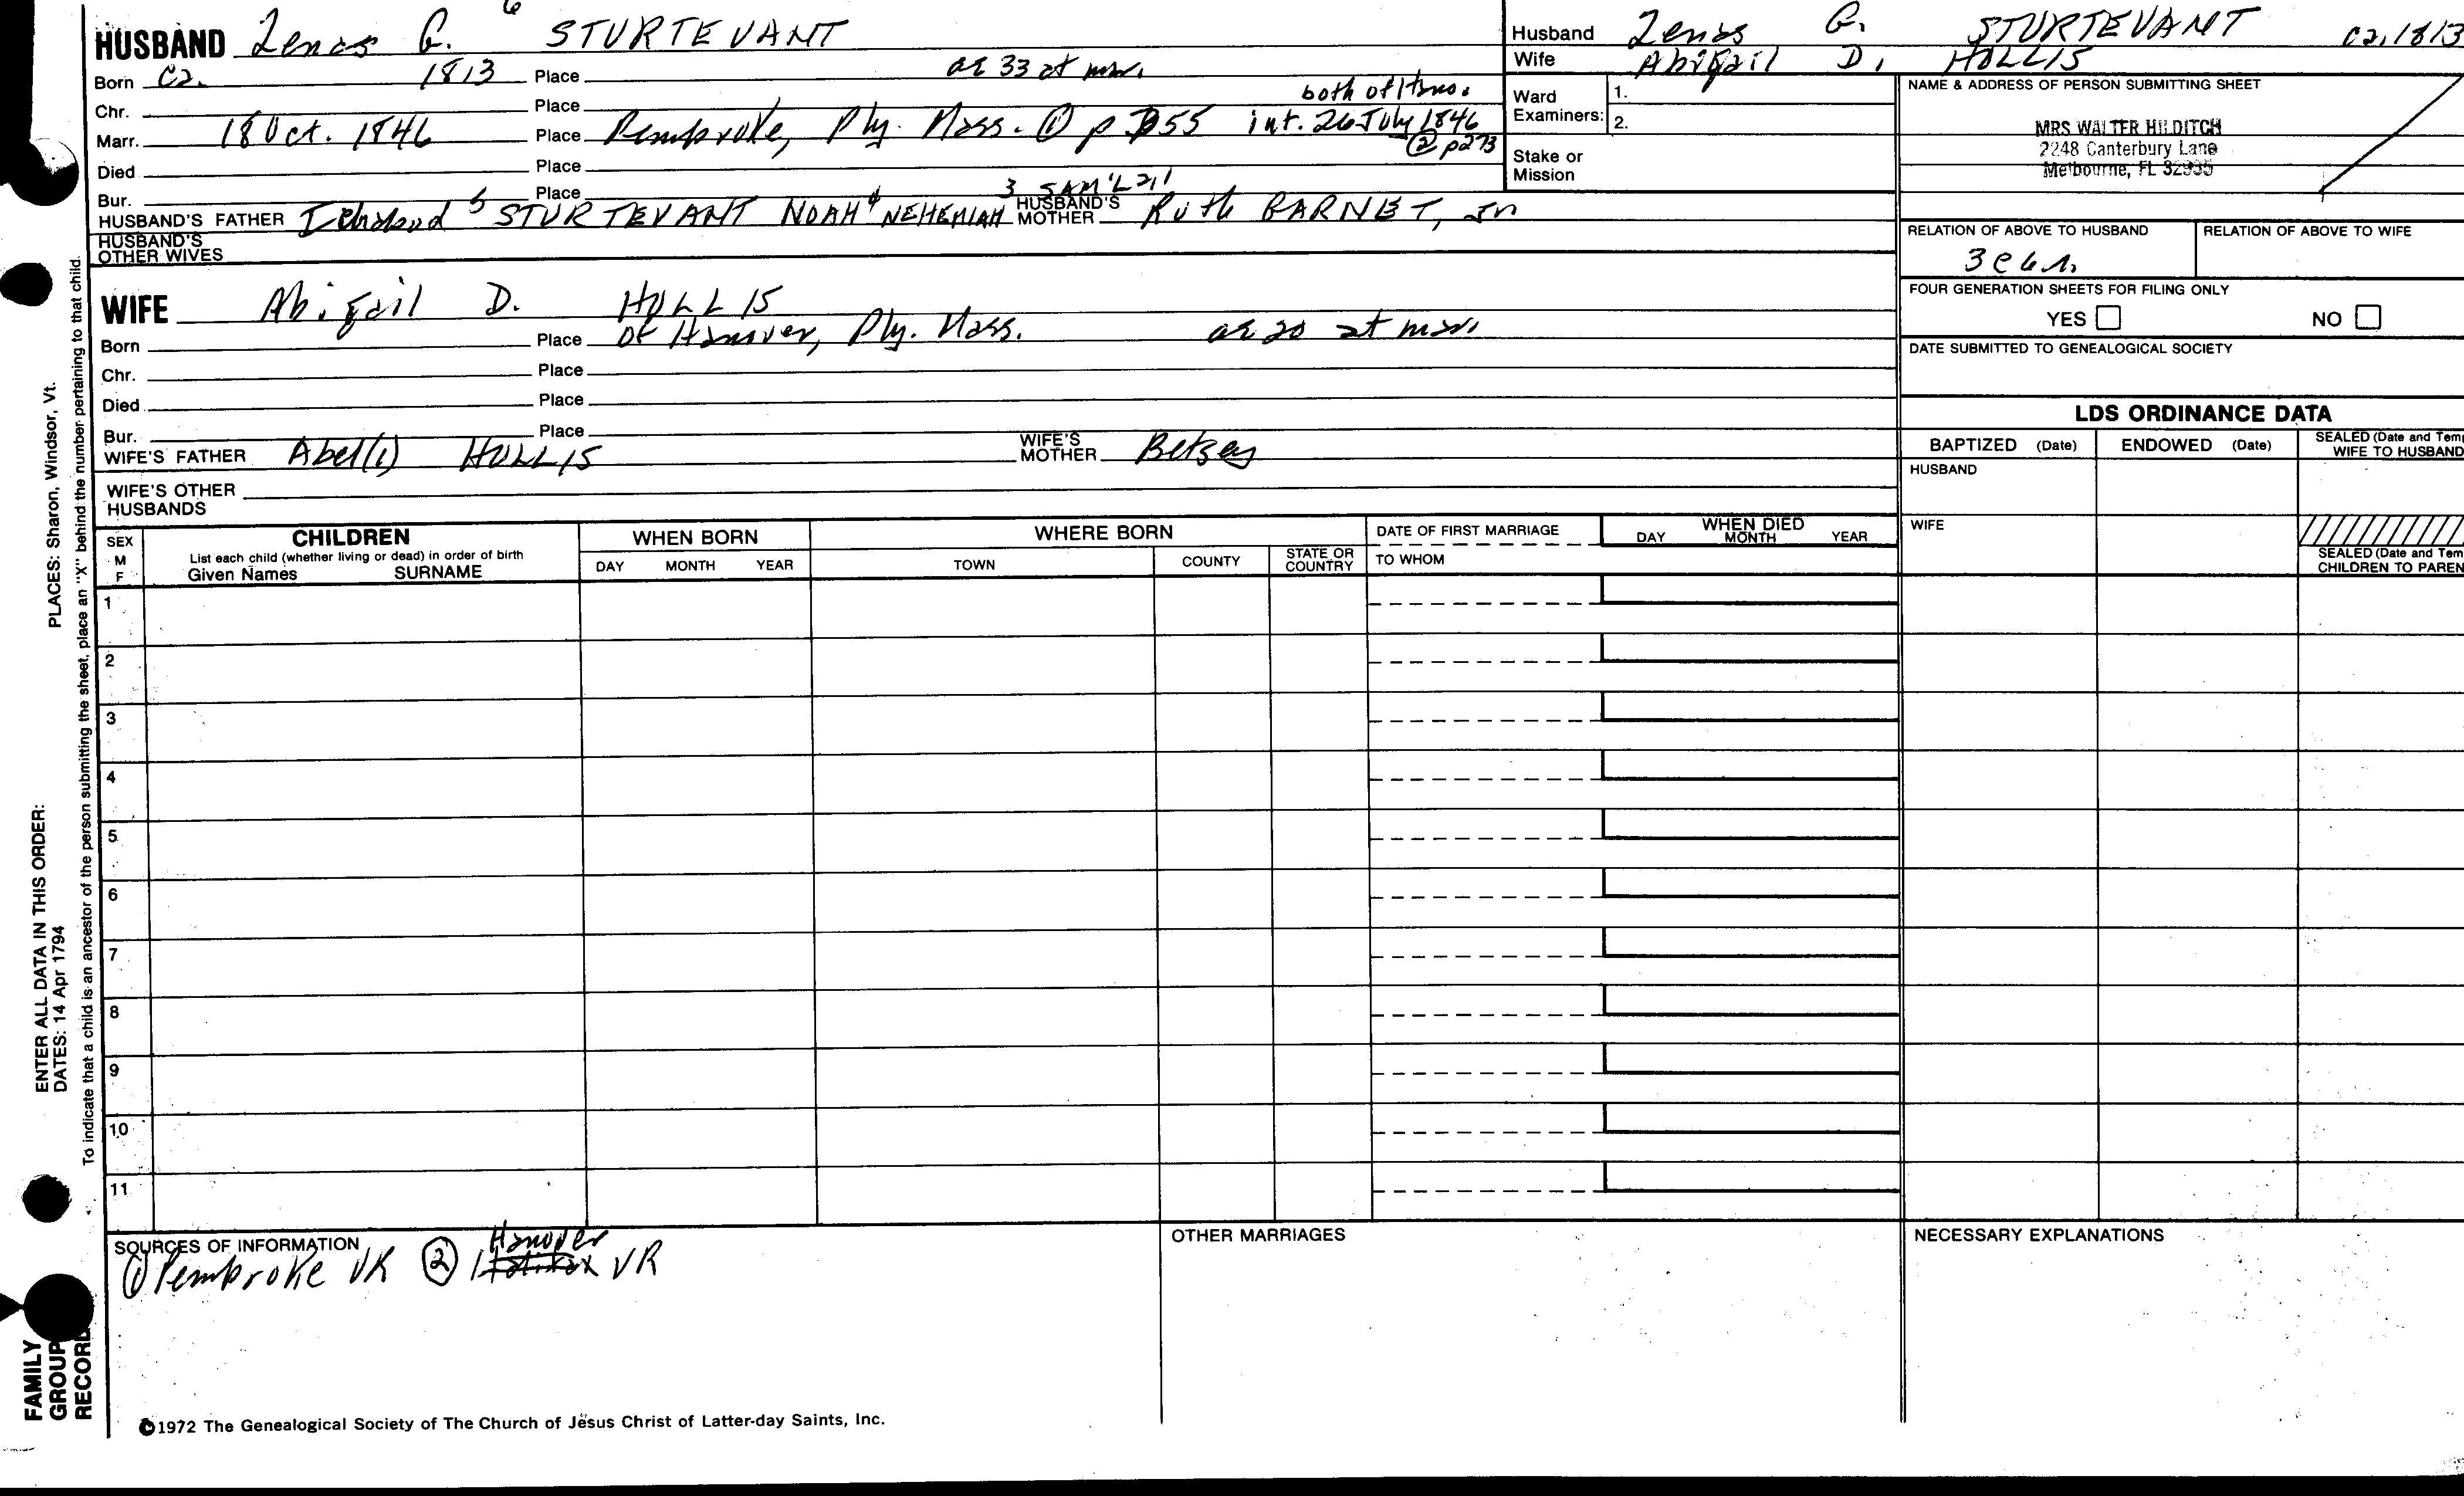 6
HUSBAND Zenas G. STURTEVANT
Born ca. 1813 Place ae 33 at mar.
Chr. Place both of Hano.
Marr. 18 Oct. 1846 Place Pembroke, Ply. Mass. ① p 355 int. 26 July 1846
② p273
Died Place
Bur. Place 3 SAM'L 2,1
HUSBAND'S FATHER 5 STURTEVANT NOAH 4 NEHEMIAH HUSBAND'S MOTHER Ruth BARNET, Jr
HUSBAND'S OTHER WIVES
WIFE Abigail D. HOLLIS
Born Place Of Hanover, Ply. Mass. ae 20 at mar.
Chr. Place
Died Place
Bur. Place
WIFE'S FATHER Abel(1) HOLLIS WIFE'S MOTHER Betsey
WIFE'S OTHER HUSBANDS
Husband Zenas G. STURTEVANT ca. 1813
Wife Abigail D. HOLLIS
Ward Examiners: 1.
2.
Stake or Mission
NAME & ADDRESS OF PERSON SUBMITTING SHEET
MRS WALTER HILDITCH
2248 Canterbury Lane
Melbourne, FL 32935
RELATION OF ABOVE TO HUSBAND RELATION OF ABOVE TO WIFE
3c6r.
FOUR GENERATION SHEETS FOR FILING ONLY
YES NO
DATE SUBMITTED TO GENEALOGICAL SOCIETY
LDS ORDINANCE DATA
BAPTIZED (Date) ENDOWED (Date) SEALED (Date and Tem
WIFE TO HUSBAND
HUSBAND
WIFE
SEALED (Date and Tem
CHILDREN TO PAREN
SEX M F
CHILDREN
List each child (whether living or dead) in order of birth
Given Names SURNAME
WHEN BORN
DAY MONTH YEAR
WHERE BORN
TOWN COUNTY STATE OR COUNTRY
DATE OF FIRST MARRIAGE
TO WHOM
WHEN DIED
DAY MONTH YEAR
1
2
3
4
5
6
7
8
9
10
11
SOURCES OF INFORMATION
Hanover
① Pembroke VR ② Halifax VR
OTHER MARRIAGES
NECESSARY EXPLANATIONS
©1972 The Genealogical Society of The Church of Jesus Christ of Latter-day Saints, Inc.
FAMILY
GROUP
RECORD
ENTER ALL DATA IN THIS ORDER:
DATES: 14 Apr 1794
PLACES: Sharon, Windsor, Vt.
To indicate that a child is an ancestor of the person submitting the sheet, place an "X" behind the number pertaining to that child.